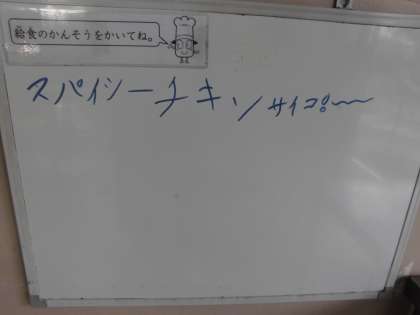 給食のかんそうをかいてね。
スパイシーチキンサイコー〜〜